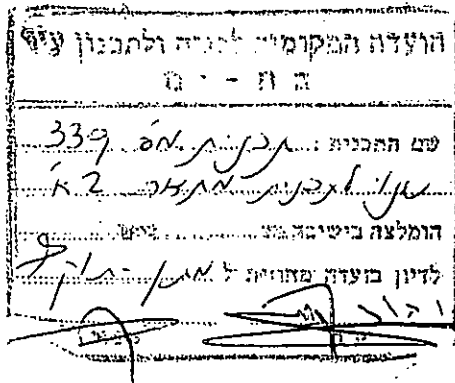 הועדה המקומית לבניה ולתכנון עיר
בת - ים
שם התכנית: תכנית מס' 339
שנוי לתכנית מתאר 2 א'
הומלצה בישיבה מס'
לדיון בועדה מחוזית ל מתן תוקף